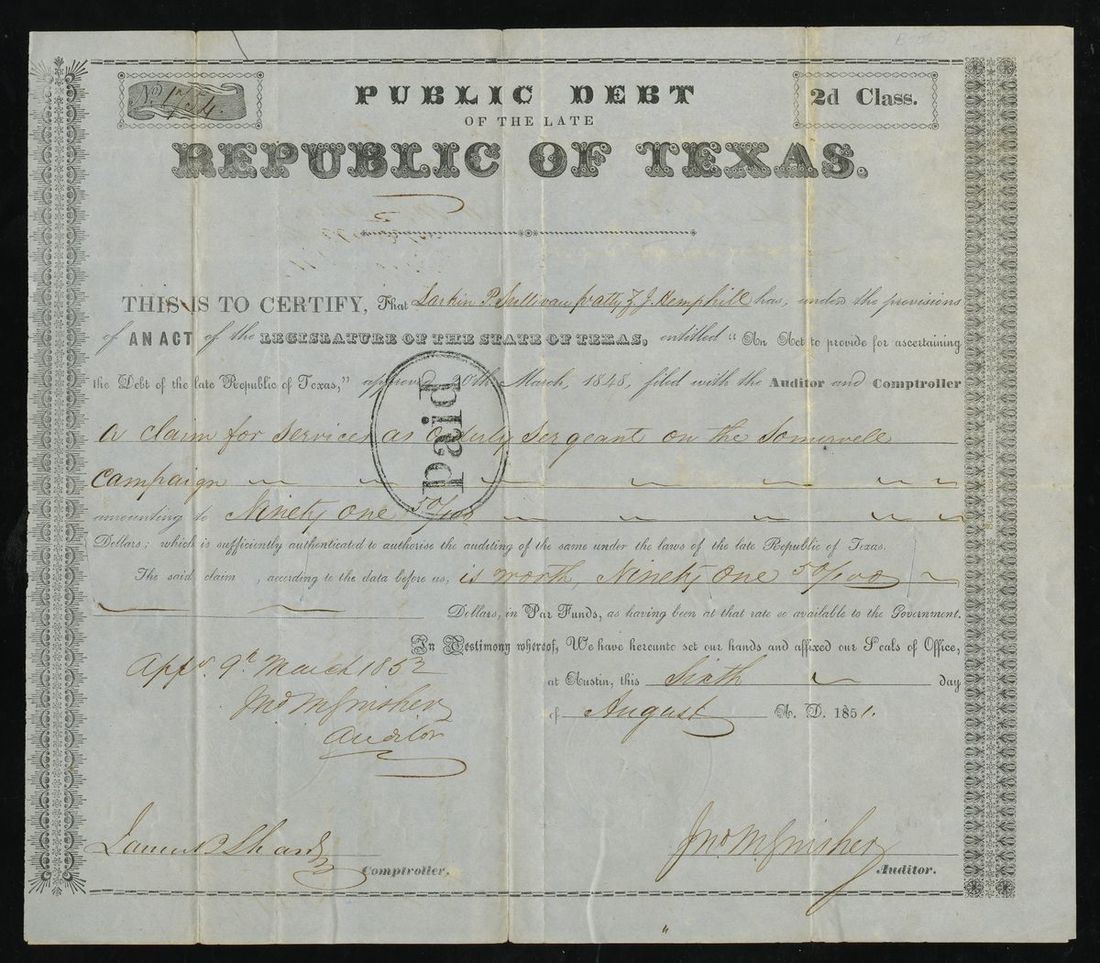 No. 1754.
PUBLIC DEBT
2d Class.
OF THE LATE
REPUBLIC OF TEXAS.
THIS IS TO CERTIFY, That Larkin P. Sullivan pr atty Z J. Hemphill has, under the provisions
of AN ACT of the LEGISLATURE OF THE STATE OF TEXAS, entitled "An Act to provide for ascertaining
the Debt of the late Republic of Texas," approved 20th March, 1848, filed with the Auditor and Comptroller
Paid
a claim for Services as Orderly Sergeant on the Somervell
Campaign
amounting to Ninety One 50/100
Dollars; which is sufficiently authenticated to authorise the auditing of the same under the laws of the late Republic of Texas.
The said claim , according to the data before us, is worth, Ninety One 50/100
Dollars, in Par Funds, as having been at that rate so available to the Government.
In Testimony whereof, We have hereunto set our hands and affixed our Seals of Office,
at Austin, this Sixth day
of August A. D. 1851.
9th March 1852
Auditor
James B Shaw
Comptroller.
Auditor.
State Gazette, Austin.